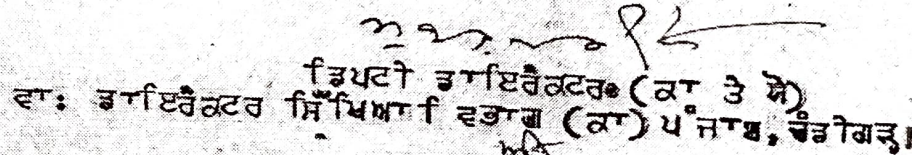 ਡਿਪਟੀ ਡਾਇਰੈਕਟਰ (ਕਾ ਤੇ ਯੋ)
ਵਾ: ਡਾਇਰੈਕਟਰ ਸਿੱਖਿਆ ਵਿਭਾਗ (ਕਾ) ਪੰਜਾਬ, ਚੰਡੀਗੜ੍ਹ।